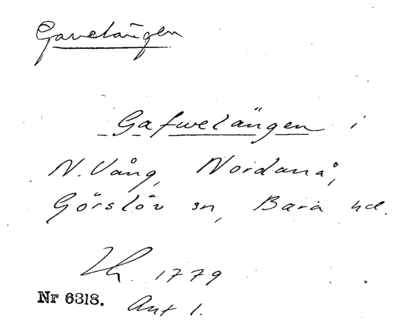 Gavelängen
Gafwelängen i
N. Vång, Nordanå,
Görslöv sn, Bara hd.
Lh. 1779
Nr 6318. Akt 1.